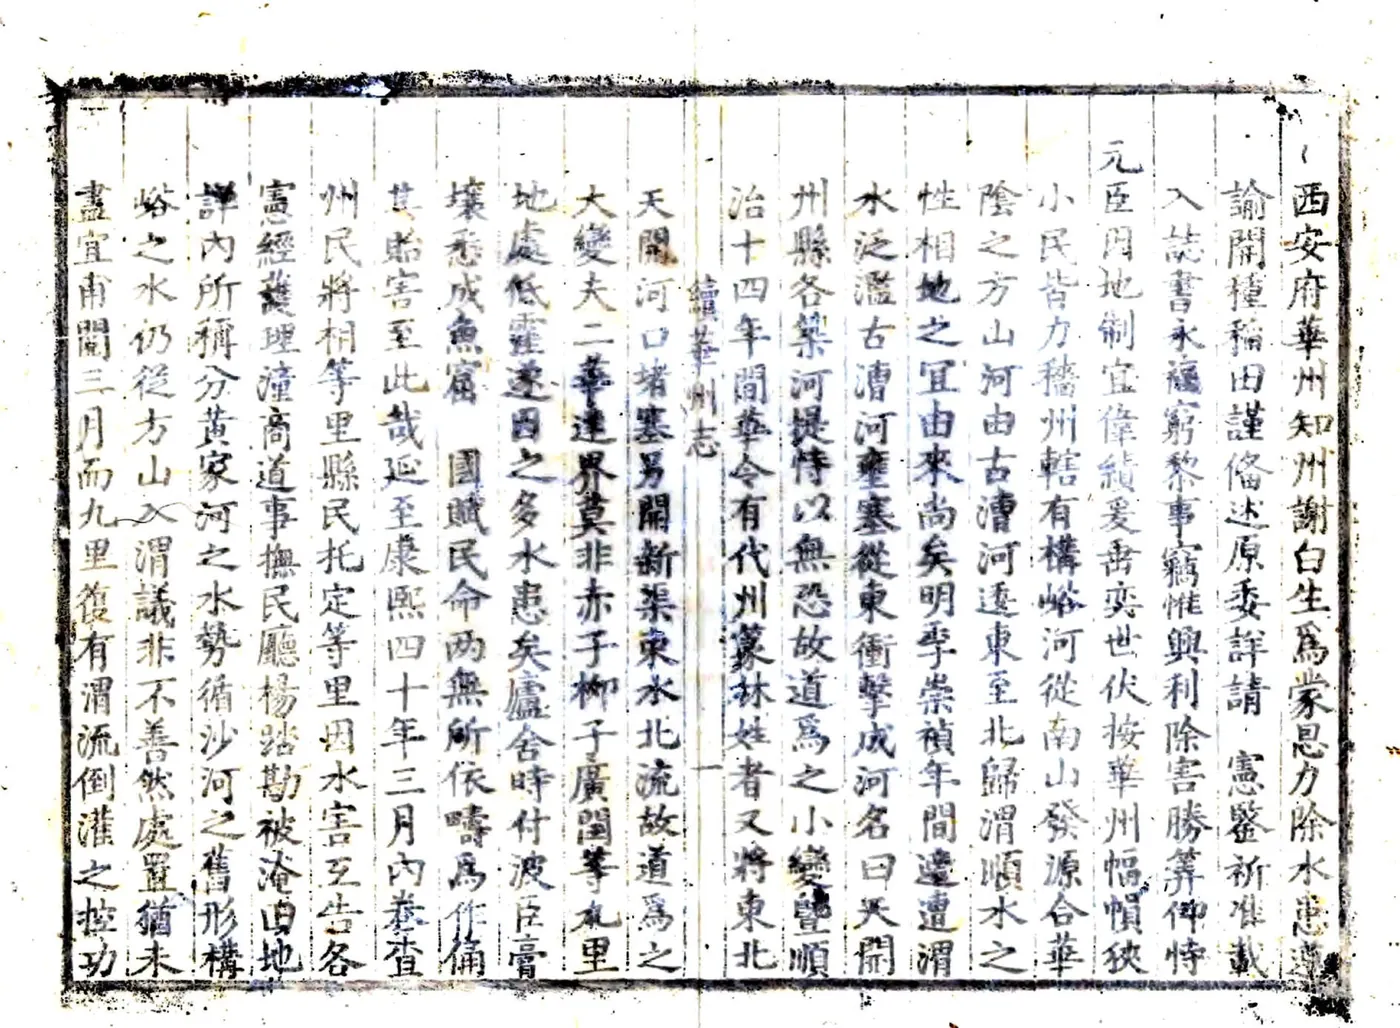 西安府華州知州謝白生爲蒙恩力除水患遵
諭開種稻田謹俻述原委詳請 憲鑒祈准載
入誌書永福窮黎事竊惟興利除害勝筭仰恃
元臣因地制宜偉績爰垂奕世伏按華州幅幀狹
小民皆力穡州轄有構峪河從南山發源合華
陰之方山河由古漕河逶東至北歸渭順水之
性相地之宜由來尚矣明季崇禎年間遭遭渭
水泛濫古漕河壅塞從東衝擊成河名曰天開
州縣各築河堤恃以無恐故道爲之小變暨順
治十四年間華令有代州篆林姓者又將東北
續華州志 一
天開河口堵塞另開新渠東水北流故道爲之
大變夫二華連界莫非赤子柳子廣閏等九里
地處低窪遂因之多水患矣廬舍時付波臣膏
壤悉成魚窟 國賦民命两無所依疇爲作俑
其貽害至此哉延至康熙四十年三月內卷查
州民將相等里縣民托定等里因水害互告各
憲經護理潼商道事撫民廳楊踏勘被淹由地
詳內所稱分黃家河之水勢循沙河之舊形構
峪之水仍從方山入渭議非不善然處置猶未
盡宜甫閱三月而九里復有渭流倒灌之控功